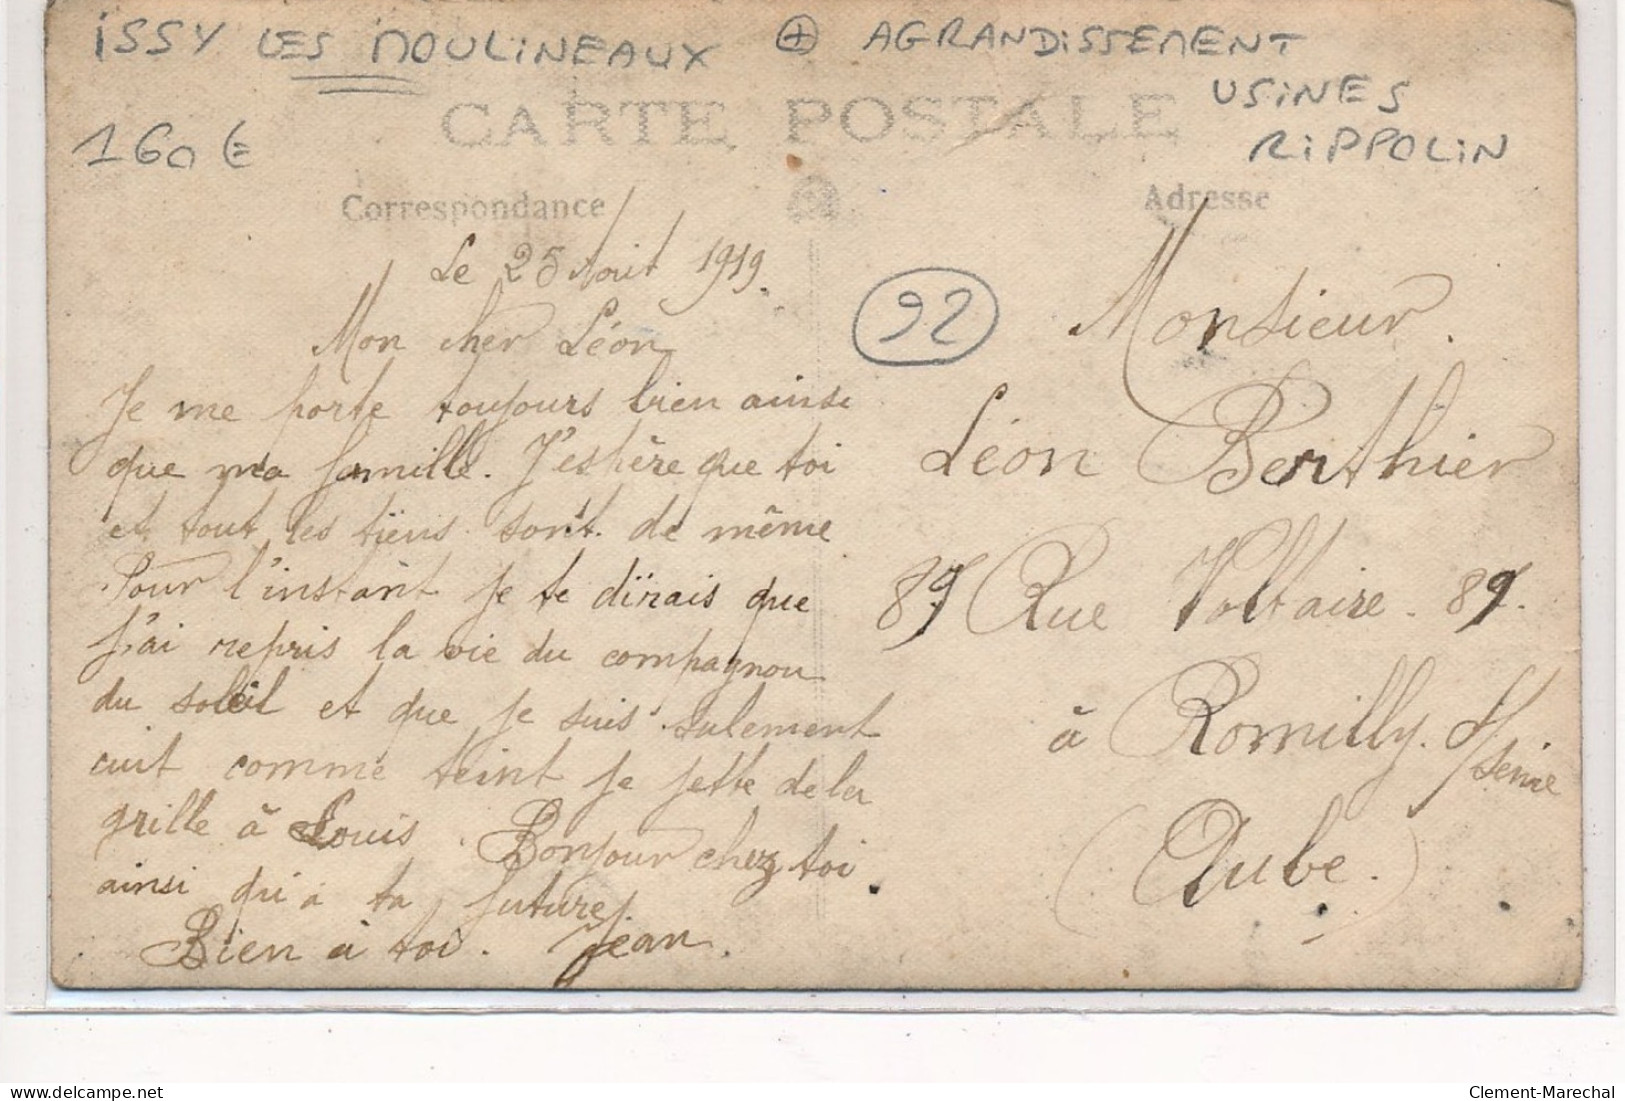 ISSY LES MOULINEAUX + AGRANDISSEMENT
USINES
RIPPOLIN
160 €
CARTE POSTALE
Correspondance
Adresse
Le 25 Août 1919.
Mon cher Léon
Je me porte toujours bien ainsi
que ma famille. J'espère que toi
et tout les tiens sont de même
Pour l'instant je te dirais que
j'ai repris la vie du compagnon
du soleil et que je suis sulement
cuit comme teint je jette de la
grille à Louis. Bonjour chez toi
ainsi qu'a ta future.
Bien à toi. Jean.
92
Monsieur.
Léon Berthier
89 Rue Voltaire. 89.
à Romilly s/Seine
(Aube.)
Clement-Marechal
delcampe.net